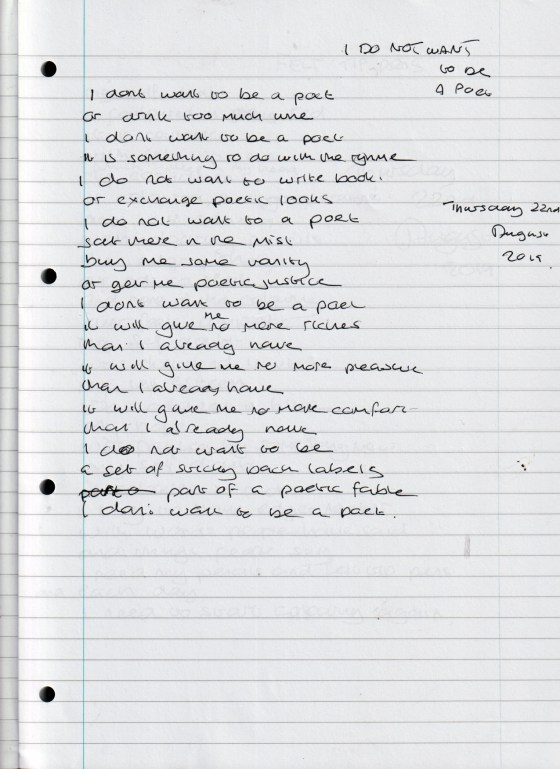 I DO NOT WANT
to be
A Poet
I dont want to be a poet
or drink too much wine
I dont want to be a poet
it is something to do with the rhyme
I do not want to write book.
or exchange poetic looks
I do not want to a poet
sat there in the mist
buy me some vanity
or get me poetic justice
Thursday 22nd
August
2019.
I dont want to be a poet
it will give me no more riches
than I already have
it will give me no more pleasure
than I already have
it will gave me no more comfort
than I already have
I do not want to be
a set of sticky back labels
part o part of a poetic fable
I don't want to be a poet.